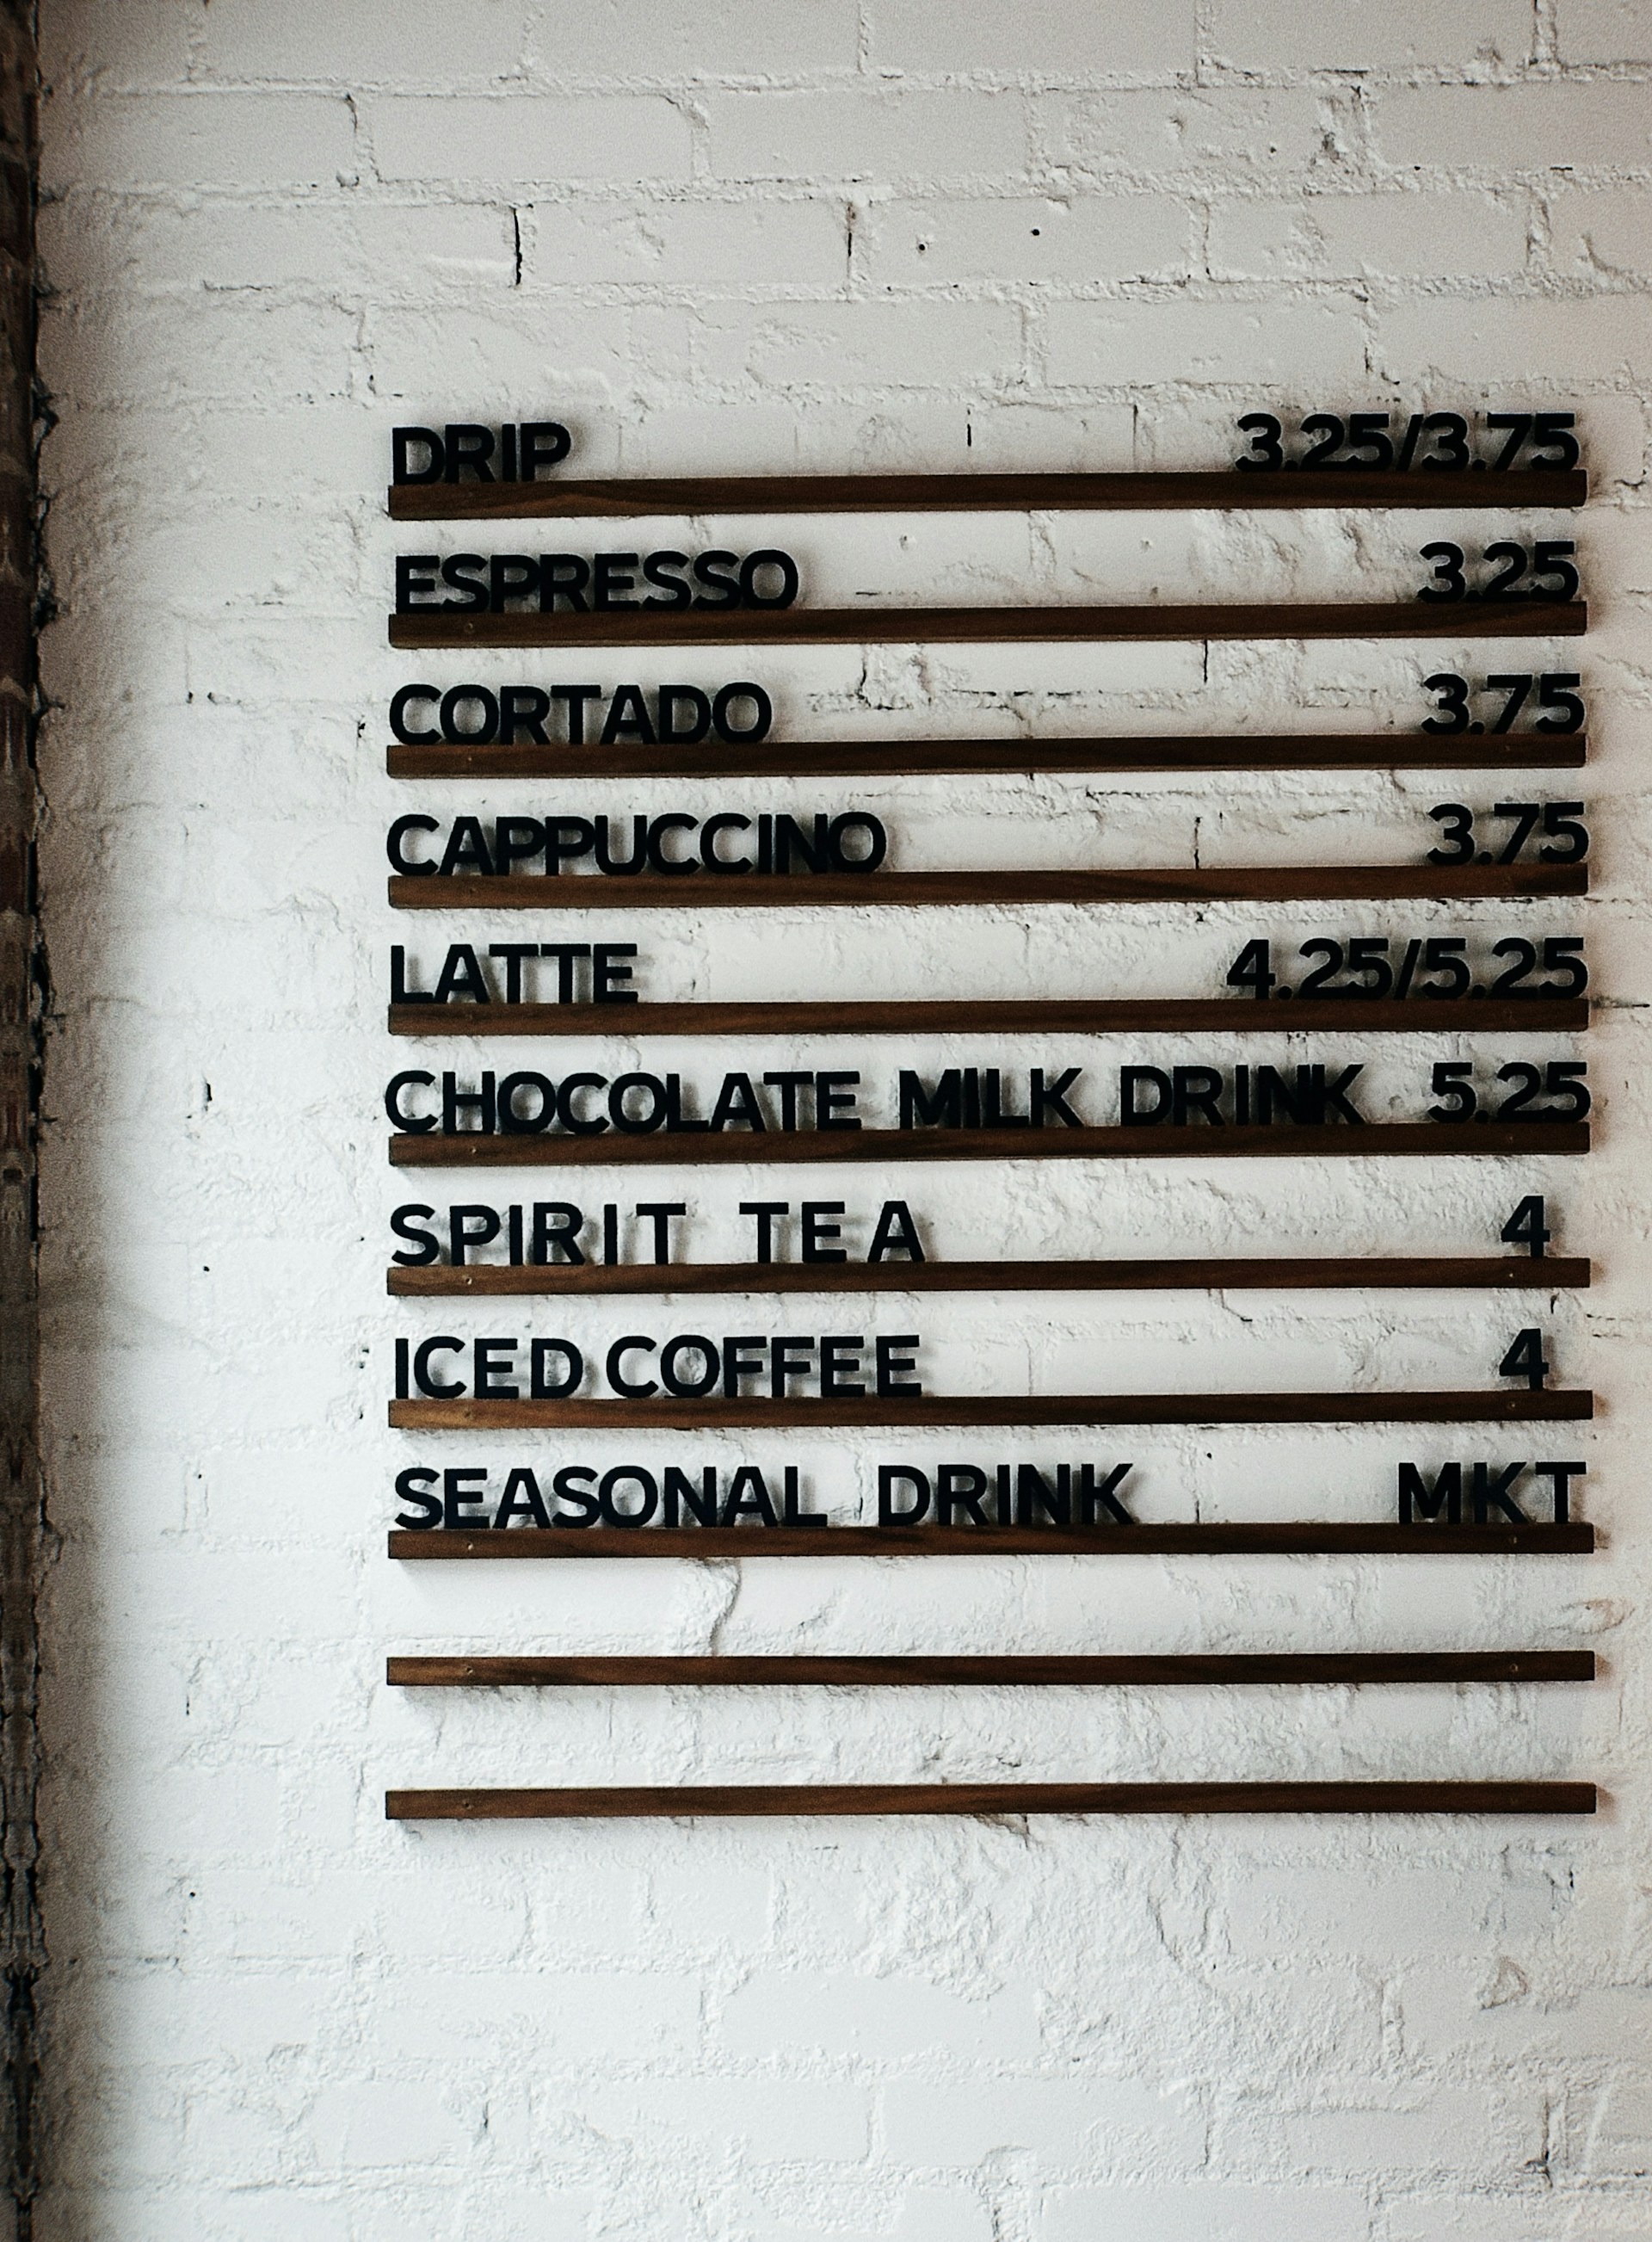 DRIP 3.25/3.75
ESPRESSO 3.25
CORTADO 3.75
CAPPUCCINO 3.75
LATTE 4.25/5.25
CHOCOLATE MILK DRINK 5.25
SPIRIT TEA 4
ICED COFFEE 4
SEASONAL DRINK MKT